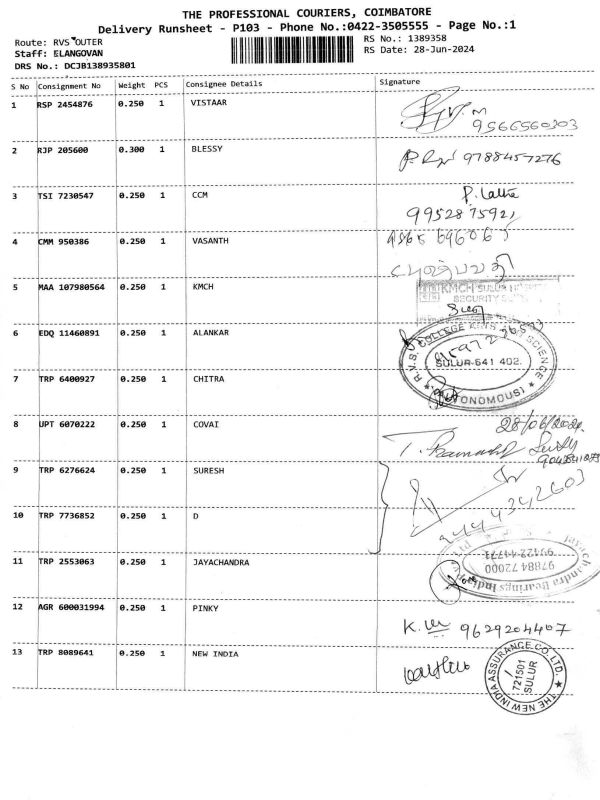 THE PROFESSIONAL COURIERS, COIMBATORE
Delivery Runsheet - P103 - Phone No.:0422-3505555 - Page No.:1
Route: RVS OUTER
RS No.: 1389358
Staff: ELANGOVAN
RS Date: 28-Jun-2024
DRS No.: DCJB138935801
S No Consignment No Weight PCS Consignee Details Signature
1 RSP 2454876 0.250 1 VISTAAR
9566560303
2 RJP 205600 0.300 1 BLESSY 9788457276
3 TSI 7230547 0.250 1 CCM P. Latha
4 CMM 950386 0.250 1 VASANTH
5 MAA 107980564 0.250 1 KMCH KMCH SULUR
SECURITY
6 EDQ 11460891 0.250 1 ALANKAR
R.V.S. COLLEGE ARTS SCIENCE
SULUR-641 402.
(AUTONOMOUS)
7 TRP 6400927 0.250 1 CHITRA
8 UPT 6070222 0.250 1 COVAI 28/06/2024
9 TRP 6276624 0.250 1 SURESH
10 TRP 7736852 0.250 1 D 9444342603
11 TRP 2553063 0.250 1 JAYACHANDRA
97884 72000
12 AGR 600031994 0.250 1 PINKY
9629204407
13 TRP 8089641 0.250 1 NEW INDIA
THE NEW INDIA ASSURANCE CO. LTD.
721501
SULUR